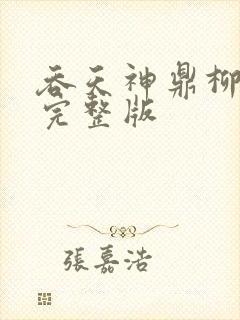 吞天神鼎柳
完整版
張嘉浩